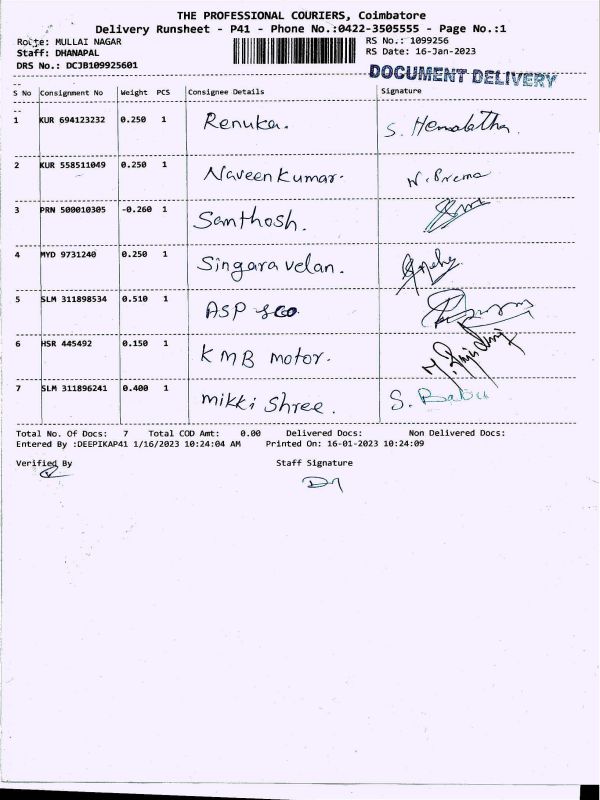 THE PROFESSIONAL COURIERS, Coimbatore
Delivery Runsheet - P41 - Phone No.:0422-3505555 - Page No.:1
Route: MULLAI NAGAR RS No.: 1099256
Staff: DHANAPAL RS Date: 16-Jan-2023
DRS No.: DCJB109925601
DOCUMENT DELIVERY
S No Consignment No Weight PCS Consignee Details Signature
1 KUR 694123232 0.250 1 Renuka. S. Hemalatha
2 KUR 558511049 0.250 1 Naveen Kumar. N. Prema
3 PRN 500010305 -0.260 1 Santhosh.
4 MYD 9731240 0.250 1 Singaravelan.
5 SLM 311898534 0.510 1 ASP
6 HSR 445492 0.150 1 KMB motor.
7 SLM 311896241 0.400 1 mikki Shree. S. Babu
Total No. Of Docs: 7 Total COD Amt: 0.00 Delivered Docs: Non Delivered Docs:
Entered By :DEEPIKAP41 1/16/2023 10:24:04 AM Printed On: 16-01-2023 10:24:09
Verified By Staff Signature